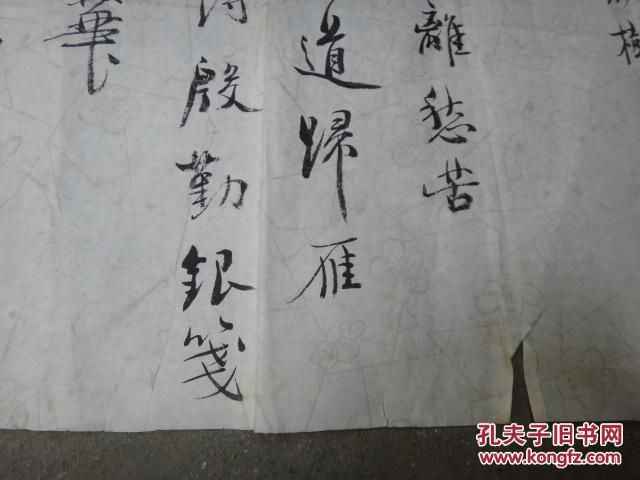 樹
離愁苦
道歸雁
殷勤銀箋
華
孔夫子旧书网
www.kongfz.com